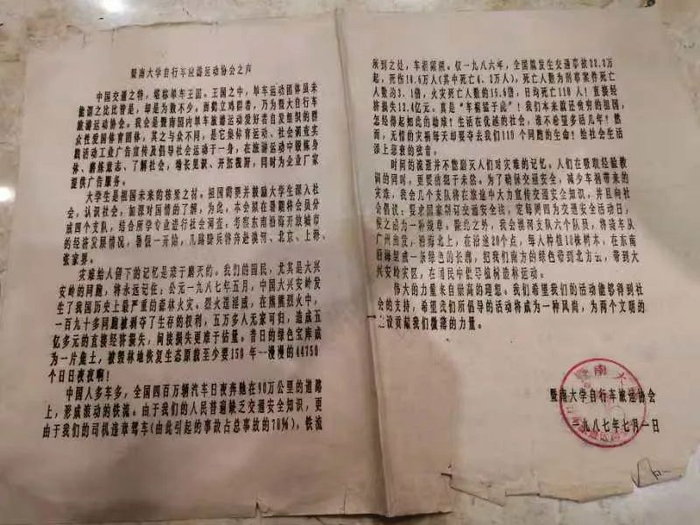 暨南大学自行车旅游运动协会之声
中国交通之特，堪称单车王国。王国之中，单车运动团体虽未
能谓之比比皆是，却是为数不少。而鹤立鸡群者，乃为暨大自行车
旅游运动协会。我会是暨南园内单车旅游运动爱好者自发组织的群
众性爱国体育团体，其之与众不同，是它集体育运动、社会调查实
践活动工业广告宣传及倡导社会运动于一身，在旅游运动中锻炼身
体、磨练意志、了解社会、增长见识、开拓视野，同时为企业厂家
提供广告服务。
大学生是祖国未来的栋梁之材。祖国需要并鼓励大学生深入社
会，认识社会，加深对国情的了解，为此，本会拟在暑期将会员分
成四个支队，结合所学专业进行社会调查，考察东南沿海开放城市
的经济发展情况。暑假一开始，几路骑兵将奔赴漠河、北京、上海、
张家界。
灾难给人留下的记忆是难于磨灭的。我们的国民，尤其是大兴
安岭的同胞，将永远记住：公元一九八七年五月，中国大兴安岭发
生了我国历史上最严重的森林火灾。烈火迅猛，在熊熊烈火中，
一百九十多同胞被剥夺了生存的权利，五万多人无家可归，造成五
亿多元的直接经济损失，间接损失更难于估量。昔日的绿色宝库成
为一片焦土，被毁林地恢复生态原貌至少要150年一漫漫的44750
个日日夜夜啊！
中国人多车多，全国四百万辆汽车日夜奔驰在90万公里的道路
上，形成滚动的铁流。由于我们的人民普遍缺乏交通安全知识，更
由于我们的司机违章驾车(由此引起的事故占总事故的70%)，铁流
所到之处，车祸频频。仅一九八六年，全国就发生交通事故
起，死伤 万人(其中死亡 万人)，死亡人数为刑事案件死
亡人数的 倍，火灾死亡人数的 倍，日均死亡110人！直接经
济损失 亿元。真是“车祸猛于虎”！我们本来就还贫穷的祖国，
怎经得起如此的劫难！生活在优越的社会，谁不希望多活几年！然
而，无情的灾祸每天却要夺去我们110个同胞的生命！给社会生活
添上悲哀的弦音。
时间的流逝并不能磨灭人们对灾难的记忆。人们在吸取经验教
训的同时，更要防患于未然。为了确保交通安全，减少车祸带来的
灾难，我会几个支队将在旅途中大力宣传交通安全知识，并且向社
会倡议：要求国家制订交通安全法，定每 为交通安全活动日，
使之如为一种规章。除此之外，我会漠河支队六个队员，将骑车从
广州出发，沿海北上，在沿途20个点，每人种植10株树木，在东南
沿海里成一条绿色的长廊，把我们南方的绿色带到北方去，带到大
兴安岭灾区，在国民中倡导植树造林运动。
伟大的力量来自崇高的理想。我们希望我们的活动能够得到社
会的支持，希望我们所倡导的活动将成为一种风尚，为两个文明的
建设贡献我们微薄的力量。
暨南大学自行车旅游协会
一九八七年七月一日